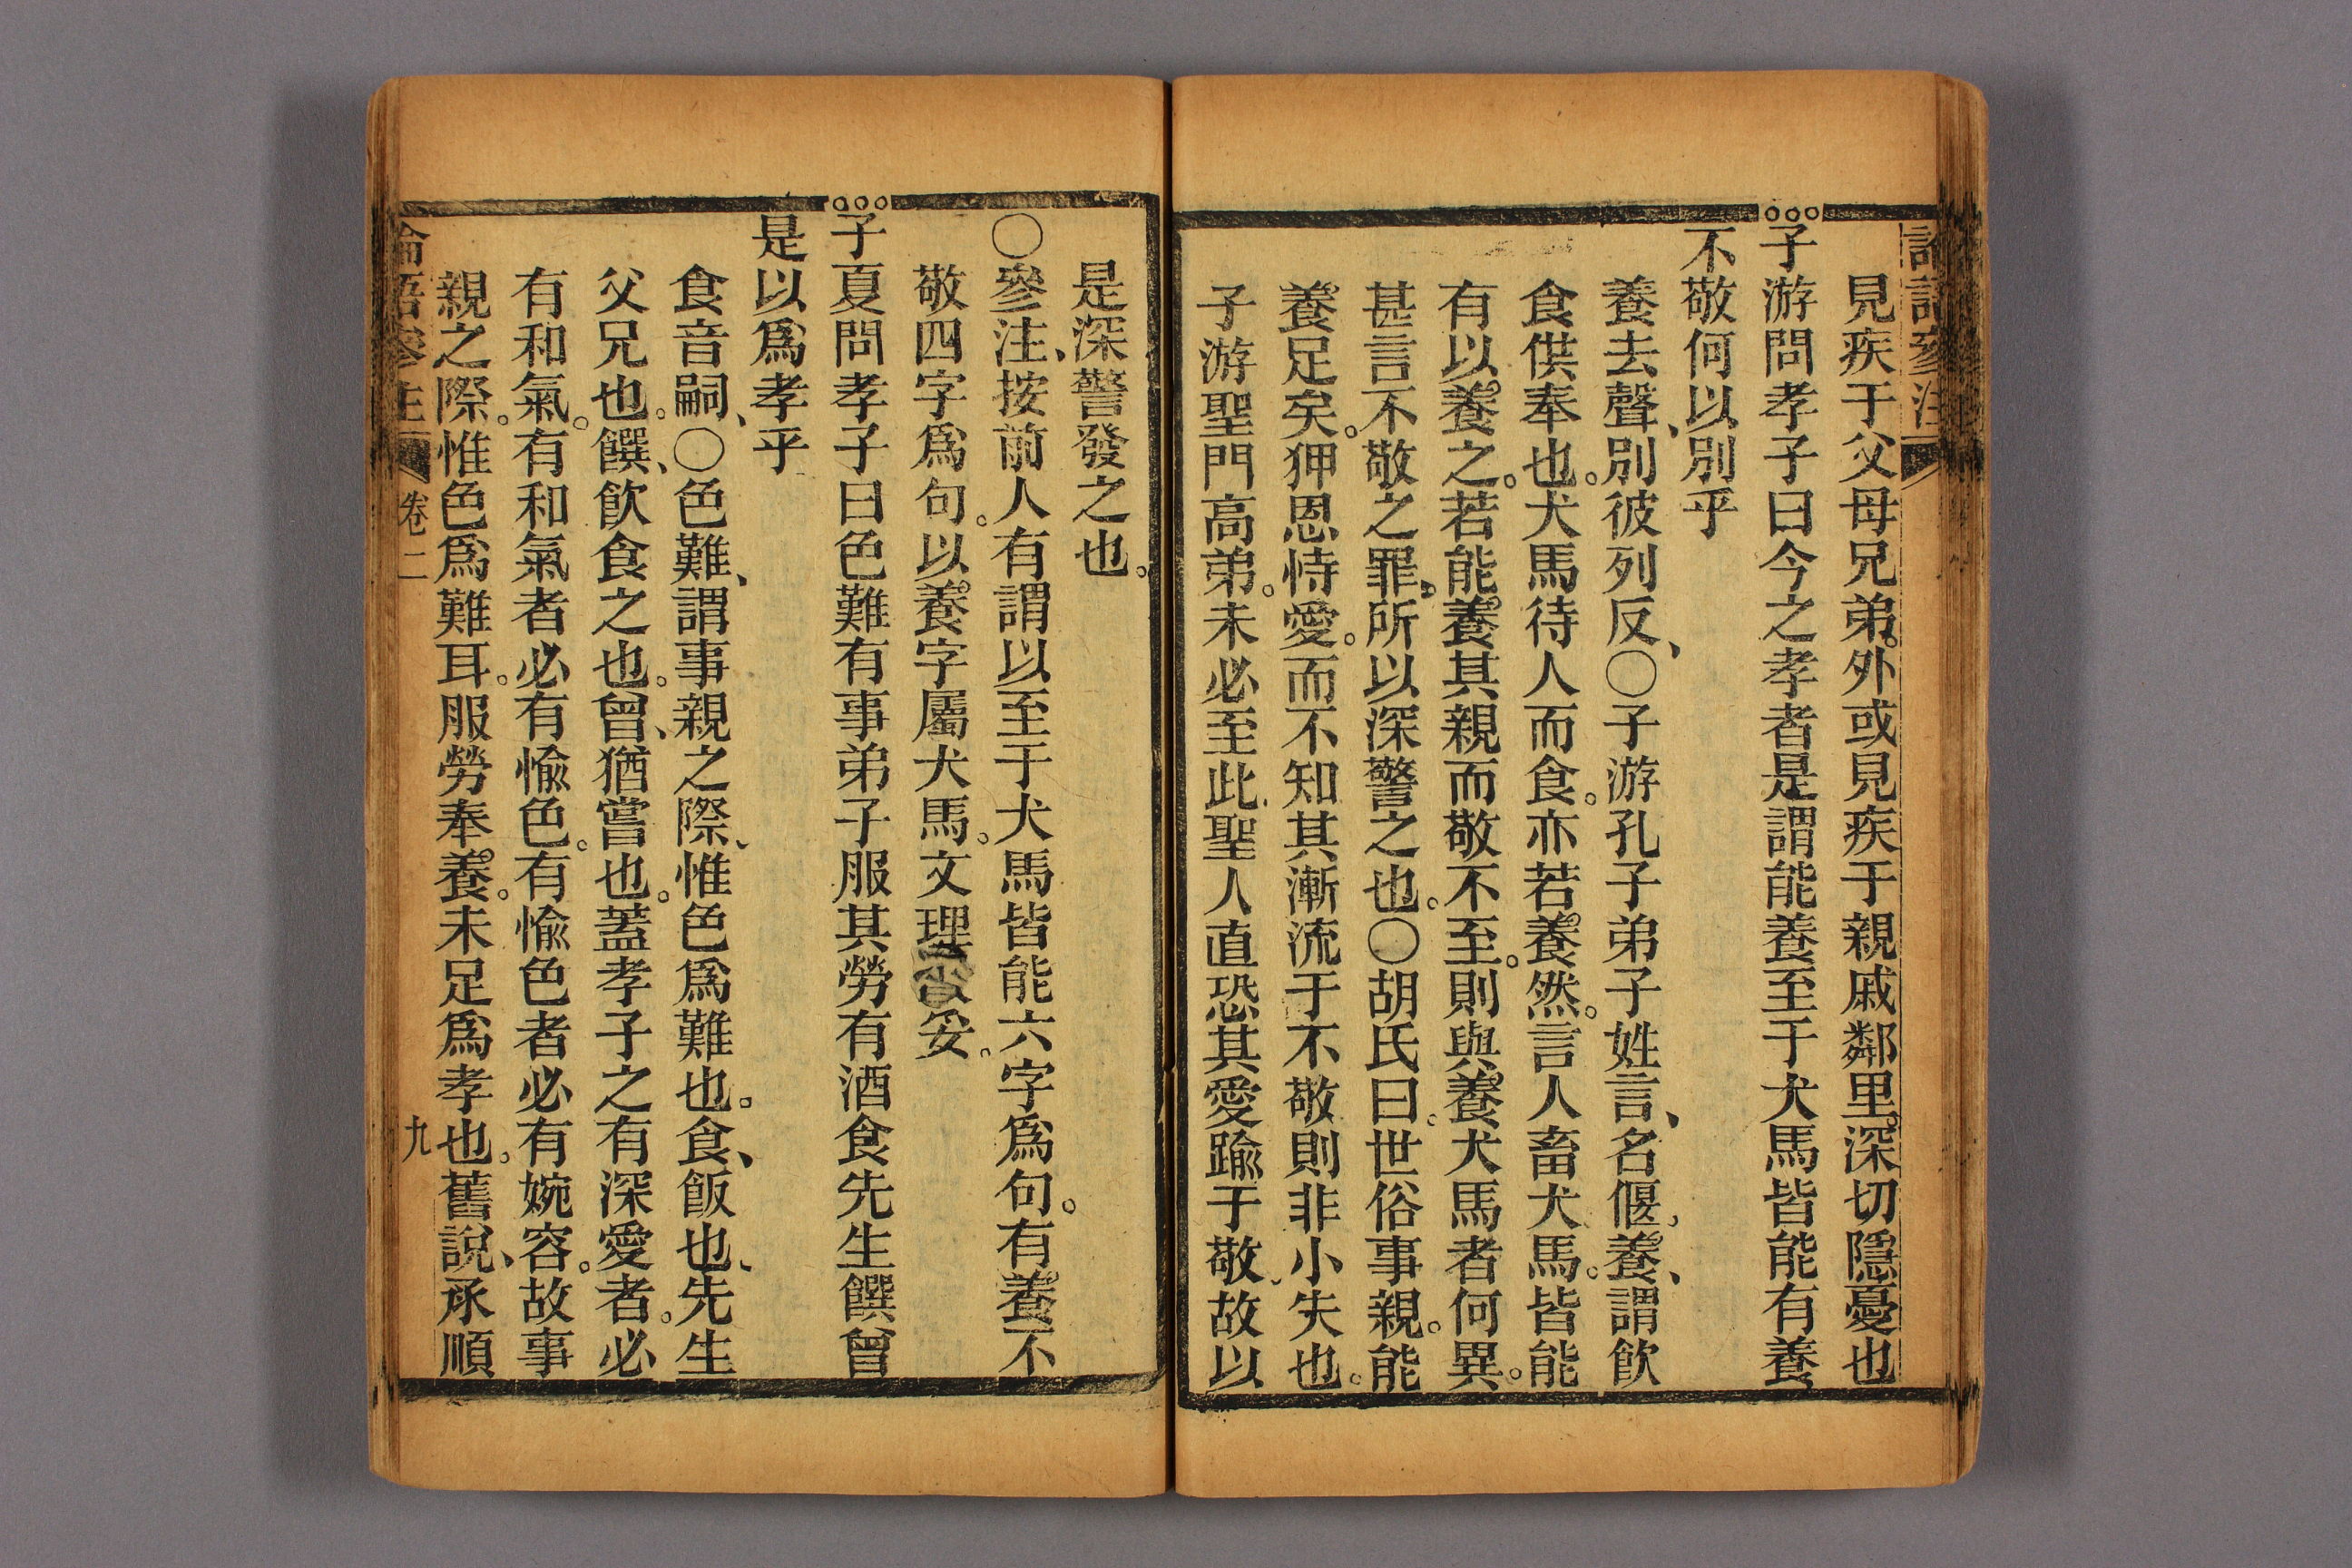 見疾于父母兄弟。外或見疾于親戚鄰里。深切隱憂也
子游問孝子曰今之孝者是謂能養至于犬馬皆能有養
不敬何以別乎
養去聲、別彼列反、○子游孔子弟子姓言、名偃。養、謂飲
食供奉也。犬馬待人而食。亦若養然。言人畜犬馬。皆能
有以養之。若能養其親而敬不至。則與養犬馬者何異。
甚言不敬之罪、所以深警之也。○胡氏曰。世俗事親。能
養足矣。狎恩恃愛。而不知其漸流于不敬則非小失也。
子游聖門高弟。未必至此、聖人直恐其愛踰于敬、故以
是深警發之也。
○參注、按前人有謂以至于犬馬皆能六字爲句。有養不
敬四字爲句。以養字屬犬馬。文理 妥。
子夏問孝子曰色難有事弟子服其勞有酒食先生饌曾
是以爲孝乎
食音嗣、○色難、謂事親之際、惟色爲難也。食、飯也、先生
父兄也。饌、飲食之也。曾、猶嘗也。蓋孝子之有深愛者。必
有和氣。有和氣者必有愉色。有愉色者必有婉容。故事
親之際。惟色爲難耳。服勞奉養。未足爲孝也。舊說、承順
卷二
九